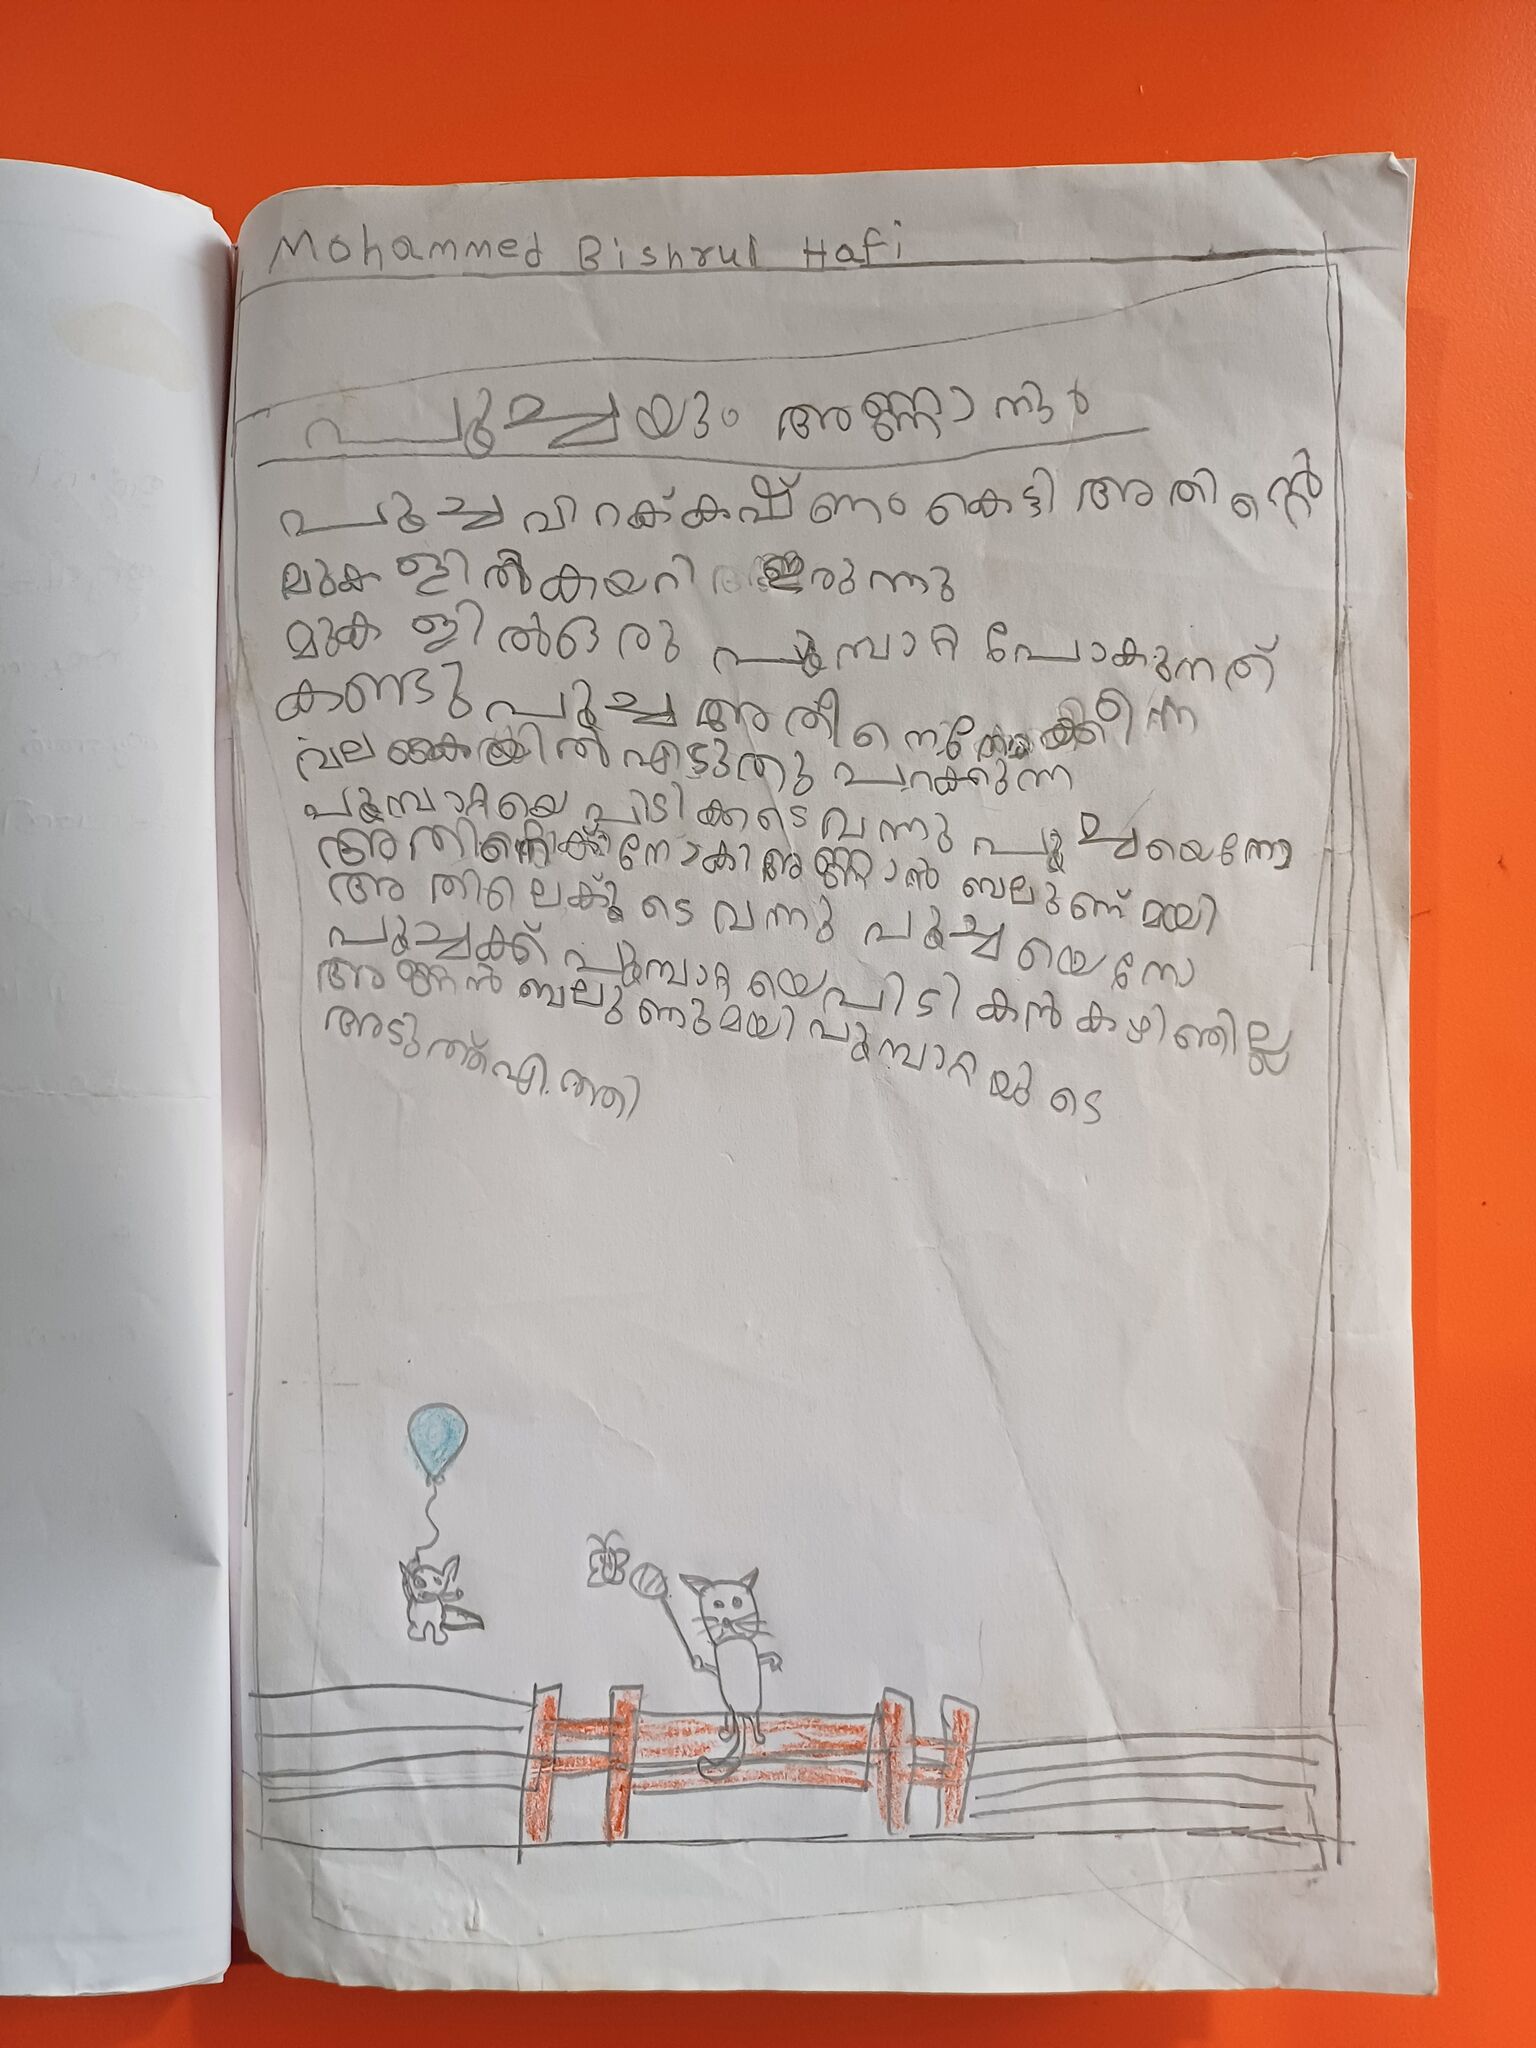 Mohammed Bishrul Hafi
പൂച്ചയും അണ്ണാനും
പൂച്ച വിറക്കഷ്ണം കെട്ടി അതിന്റെ
മുകളിൽ കയറി ഇരുന്നു
മുകളിൽ ഒരു പൂമ്പാറ്റ പോകുനത്
കണ്ടു പൂച്ച അതിനെ
വല കൈയിൽ എടുതു പറക്കുന്ന
പൂമ്പാറ്റയെ പിടിക്കടെ വന്നു പൂച്ചയെന്നോ
നോകി അണ്ണാൻ ബലൂണ് മയി
അതിലെക്കൂടെ വന്നു പൂച്ചയെനേ
പൂച്ചക്ക് പൂമ്പാറ്റയെ പിടികൻ കഴിഞ്ഞില്ല
അണ്ണൻ ബലൂണുമയി പൂമ്പാറ്റയുടെ
അടുത്ത് എത്തി